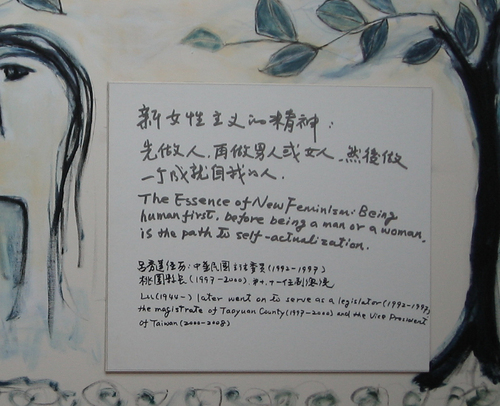 新女性主义的精神：
先做人，再做男人或女人，然後做
一个成就自我的人．
The Essence of New Feminism: Being
human first, before being a man or a woman,
is the path to self-actualization.
呂秀蓮任立法委員(1992-1997)
桃園縣長(1997-2000)
Lu(1944-) later went on to serve as a legislator(1992-1997),
the magistrate of Taoyuan County(1997-2000) and the Vice President
of Taiwan(2000-2008)